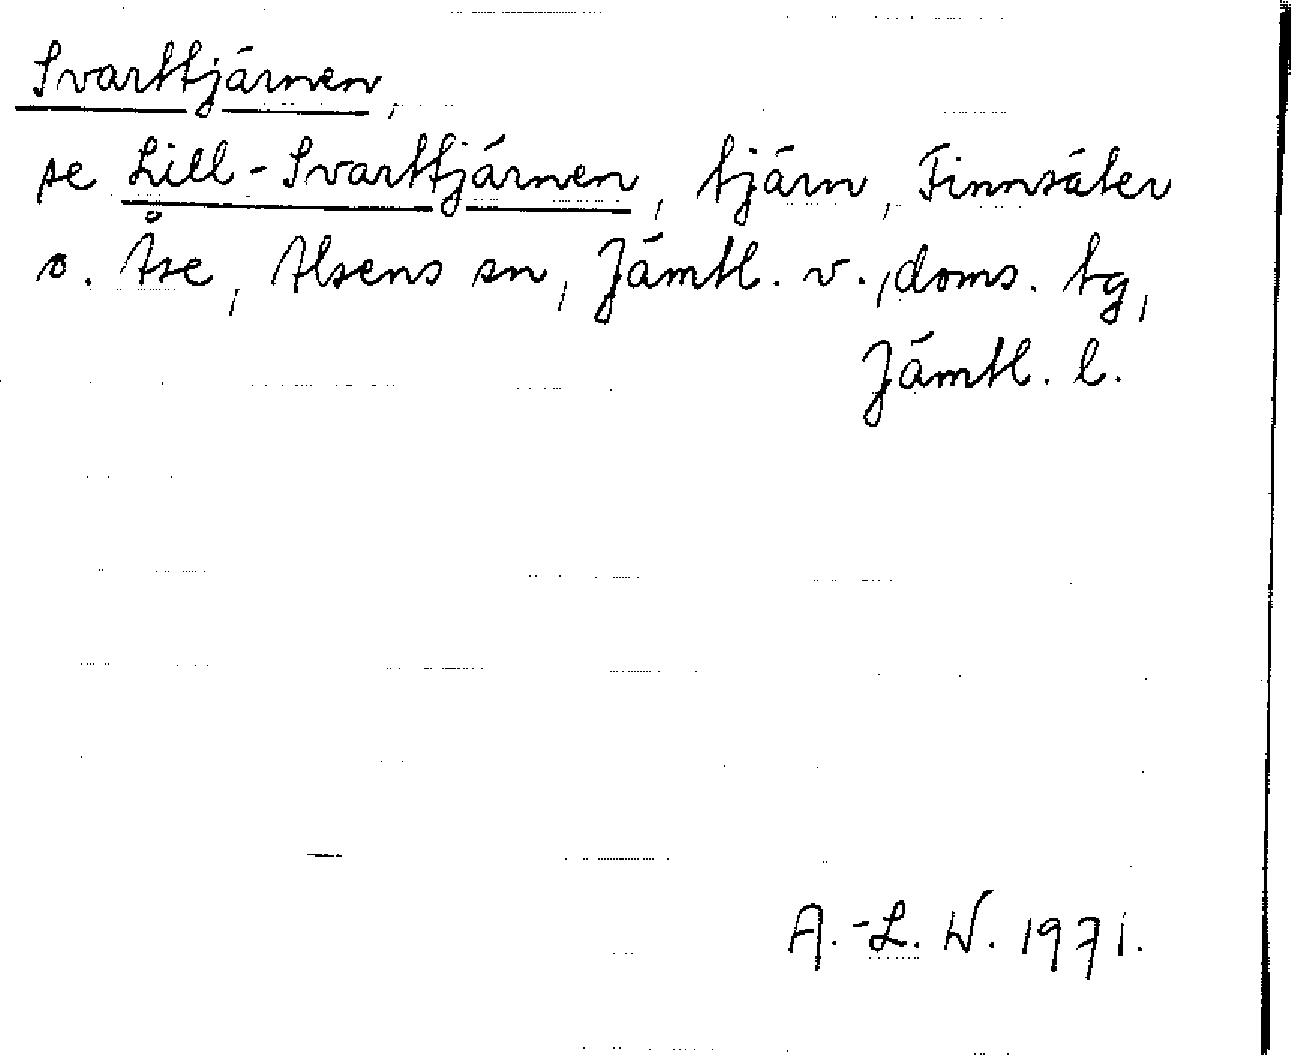 Svarttjärnen,
se Lill-Svarttjärnen, tjärn, Finnsäter
o. Åse, Alsens sn, Jämtl. v., doms. tg,
Jämtl. l.
A.-L. W. 1971.